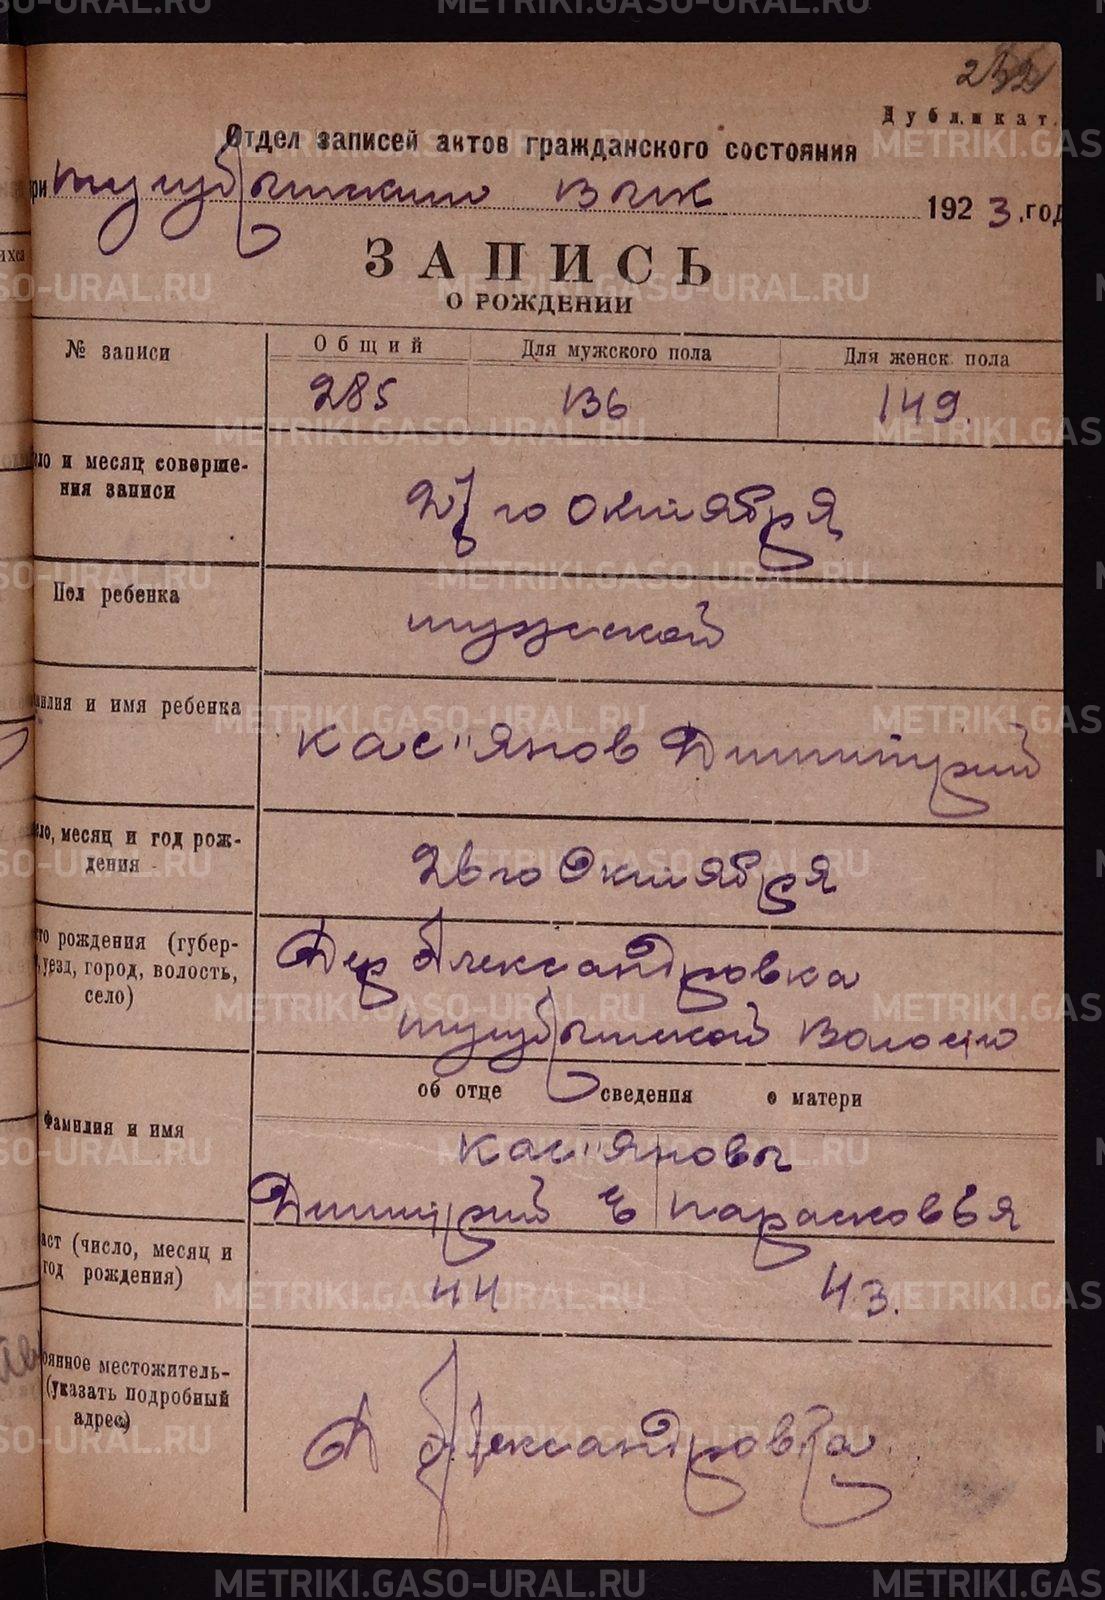 232
Дубликат.
Отдел записей актов гражданского состояния
при Шулубышским Вик 1923 год
ЗАПИСЬ
О РОЖДЕНИИ
№ записи
Общий Для мужского пола Для женск. пола
285 136 149.
ло и месяц соверше-
ния записи
27 го Октября
Пол ребенка
мужской
милия и имя ребенка
Кас"янов Димитрий
ло, месяц и год рож-
дения
26 го Октября
то рождения (губер-
, уезд, город, волость,
село)
Дер Александровка
волости
об отце сведения о матери
Фамилия и имя
Кас"яновы
Димитрий и Парасковья
аст (число, месяц и
год рождения)
44 43.
оянное местожитель-
(указать подробный
адрес)
Д Александровка
METRIKI.GASO-URAL.RU